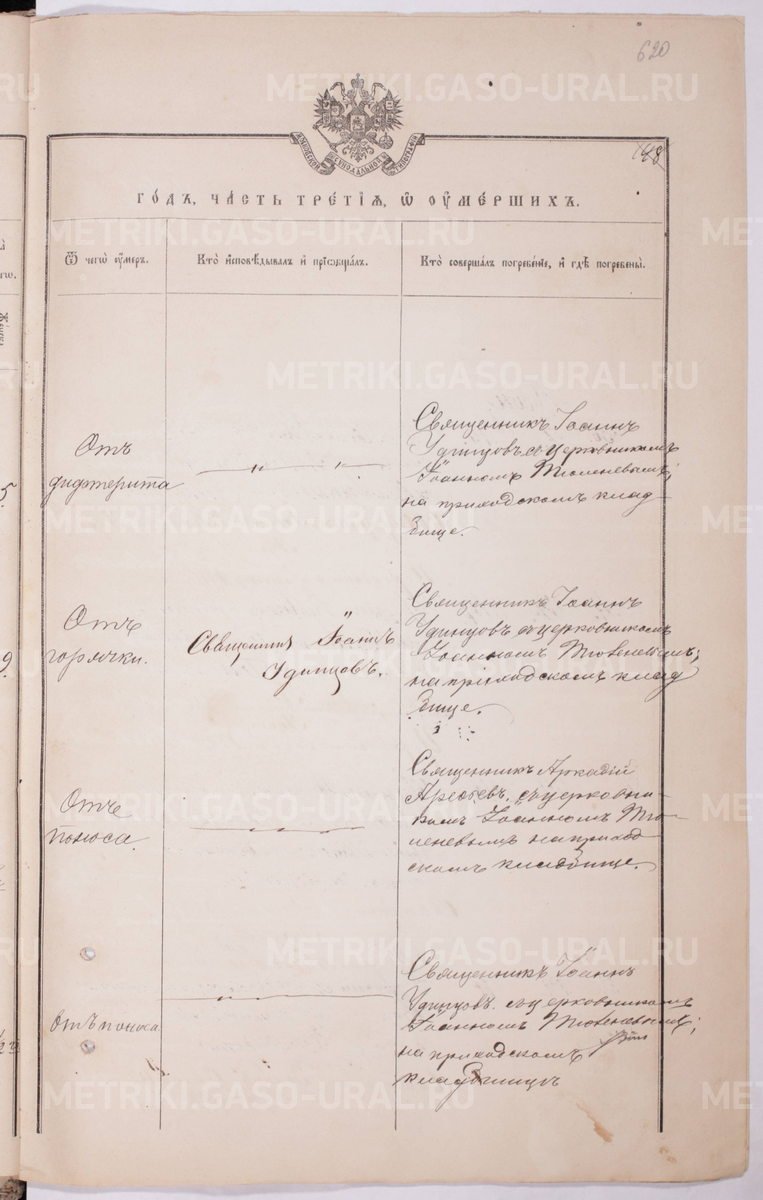 620
148
ГОДЪ, ЧАСТЬ ТРЕТІЯ, Ѿ ОУМЕРШИХЪ.
Ѿ чегѡ оумеръ.
Кто исповѣдывалъ и пріобщалъ.
Кто совершалъ погребеніе, и гдѣ погребены.
Отъ
дифтерита
Священникъ Іоаннъ
Удинцовъ съ церковникомъ
Іоанномъ Тюленевымъ;
на приходскомъ клад
бище.
Отъ
горячки.
Священникъ Іоаннъ
Удинцовъ.
Священникъ Іоаннъ
Удинцовъ съ церковникомъ
Іоанномъ Тюленевымъ;
на приходскомъ клад
бище.
Отъ
поноса.
Священникъ Аркадій
съ церковни-
комъ Іоанномъ Тю-
леневымъ на приход
скомъ кладбище.
Отъ поноса
Священникъ Іоаннъ
Удинцовъ съ церковникомъ
Іоанномъ Тюленевымъ;
на приходскомъ
METRIKI.GASO-URAL.RU